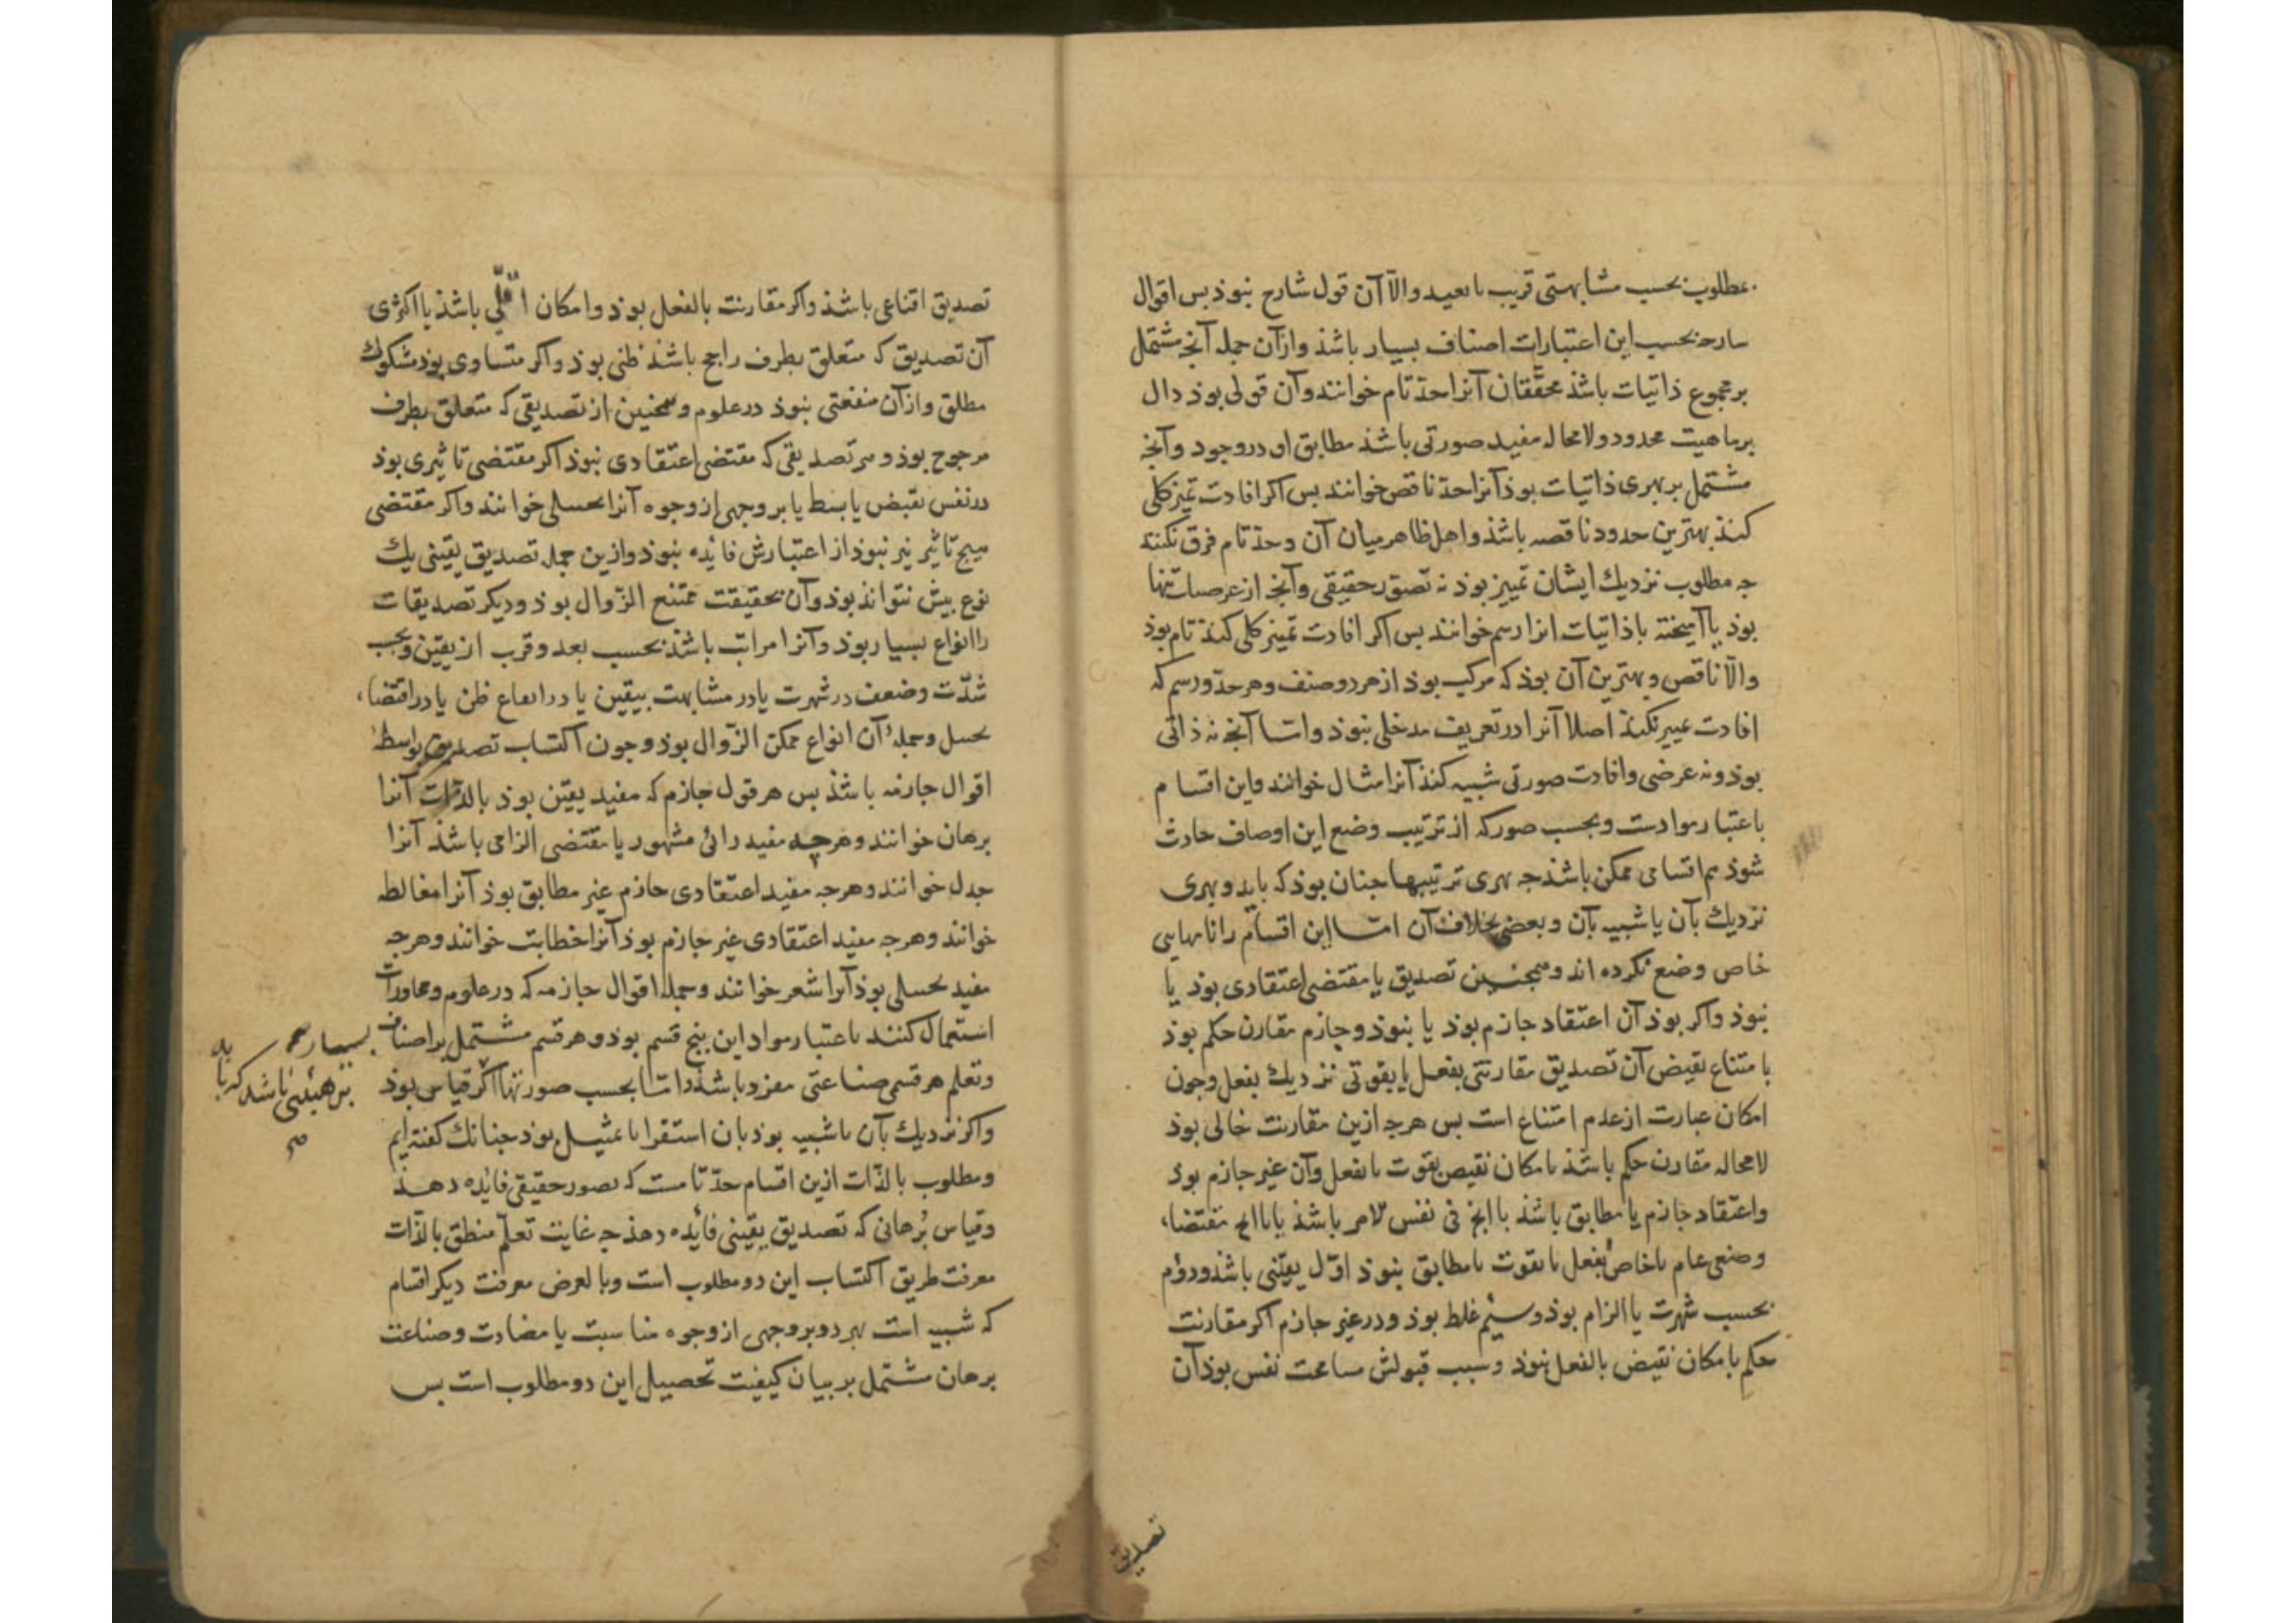 مطلوب بحسب مشابهتی قریب یا بعید والّا آن قول شارح نبوذ بس اقوال
شارحه بحسب این اعتبارات اصناف بسیار باشذ وازآن جمله آنچه مشتمل
بر مجموع ذاتیات باشذ محققان آنرا حدّ تام خوانند وآن قولی بوذ دال
بر ماهیت محدود ولامحاله مفید صورتی باشذ مطابق او در وجود وآنچه
مشتمل بر بهری ذاتیات بوذ آنرا حدّ ناقص خوانند بس اکر افادت تمیز کلی
کند بهترین حدود ناقصه باشذ واهل ظاهر میان آن وحدّ تام فرق نکنند
جه مطلوب نزدیك ایشان تمییز بوذ نه تصور حقیقی وآنچه از عرضیات تنها
بوذ یا آمیخته با ذاتیات انرا رسم خوانند بس اکر افادت تمیز کلی کند تام بوذ
والّا ناقص وبهترین آن بوذ که مرکب بوذ از هر دو صنف وهر حدّ ورسم که
افادت تمییز نکند اصلا آنرا در تعریف مدخلی نبوذ وامّا آنچه نه ذاتی
بوذ ونه عرضی وافادت صورتی شبیه کند آنرا مثال خوانند واین اقسام
باعتبار موادست وبحسب صور که از ترتیب وضع این اوصاف حادث
شوذ هم اقسامی ممکن باشذ جه بهری ترتیبها جنان بوذ که باید وبهری
نزدیك بآن یا شبیه بآن وبعضی بخلاف آن امّا این اقسام را نامهایی
خاص وضع نکرده اند وهمجنین تصدیق یا مقتضی اعتقادی بوذ یا
نبوذ واکر بوذ آن اعتقاد جازم بوذ یا نبوذ وجازم مقارن حکم بوذ
بامتناع نقیض آن تصدیق مقارنتی بفعل یا بقوتی نزدیك بفعل وجون
امکان عبارت از عدم امتناع است بس هرجه ازین مقارنت خالی بوذ
لامحاله مقارن حکم باشذ بامکان نقیض بقوت یا بفعل وآن غیر جازم بوذ
واعتقاد جازم یا مطابق باشذ با انچه فی نفس لامر باشذ یا با انچ مقتضاء
وضعی عام یا خاص بفعل یا بقوت یا مطابق نبوذ اوّل یقینی باشذ ودوّم
بحسب شهرت یا الزام بوذ وسیّم غلط بوذ ودر غیر جازم اکر مقارنت
حکم بامکان نقیض بالفعل نبوذ وسبب قبولش مسامحت نفس بوذ آن
تصدیق
تصدیق اقناعی باشذ واکر مقارنت بالفعل بوذ وامکان اقلّی باشذ یا اکثری
آن تصدیق که متعلق بطرف راجح باشذ ظنی بوذ واکر متساوی بوذ مشکوك
مطلق وازآن منفعتی نبوذ در علوم وهمجنین از تصدیقی که متعلق بطرف
مرجوح بوذ وهر تصدیقی که مقتضی اعتقادی نبوذ اکر مقتضی تاثیری بوذ
در نفس بقبض یا بسط یا بر وجهی از وجوه آنرا تخییلی خوانند واکر مقتضی
هیج تاثیر نیز نبوذ از اعتبارش فایده نبوذ وازین جمله تصدیق یقینی یك
نوع بیش نتواند بوذ وآن بحقیقت ممتنع الزّوال بوذ ودیکر تصدیقات
را انواع بسیار بوذ وآنرا مراتب باشذ بحسب بعد وقرب از یقین وبحسب
شدّت وضعف در شهرت یا در مشابهت بیقین یا در ایقاع ظن یا در اقتضاء
تخییل وجمله آن انواع ممکن الزّوال بوذ وجون اکتساب تصدیق بواسطه
اقوال جازمه باشذ بس هر قول جازم که مفید یقین بوذ بالذّات آنرا
برهان خوانند وهرجه مفید رائی مشهور یا مقتضی الزامی باشذ آنرا
جدل خوانند وهرجه مفید اعتقادی جازم غیر مطابق بوذ آنرا مغالطه
خوانند وهرجه مفید اعتقادی غیر جازم بوذ آنرا خطابت خوانند وهرجه
مفید تخییلی بوذ آنرا شعر خوانند وجمله اقوال جازمه که در علوم ومحاورات
استعمال کنند باعتبار مواد این بنج قسم بوذ وهر قسم مشتمل بر اصناف
وتعلم هر قسمی صناعتی مفرد باشذ وامّا بحسب صور تنها اکر قیاس بوذ
واکر نزدیك بآن یا شبیه بوذ بان استقرا یا تمثیل بوذ جنانك کفته ایم
ومطلوب بالذّات ازین اقسام حدّ تامست که تصور حقیقی فایده دهذ
وقیاس بُرهانی که تصدیق یقینی فائده دهذ جه غایت تعلّم منطق بالذّات
معرفت طریق اکتساب این دو مطلوب است وبالعرض معرفت دیکر اقسام
که شبیه است بهر دو بر وجهی از وجوه مناسبت یا مضادت وصناعت
برهان مشتمل بر بیان کیفیت تحصیل این دو مطلوب است بس
بسیار
بر هیئتی باشد که باید